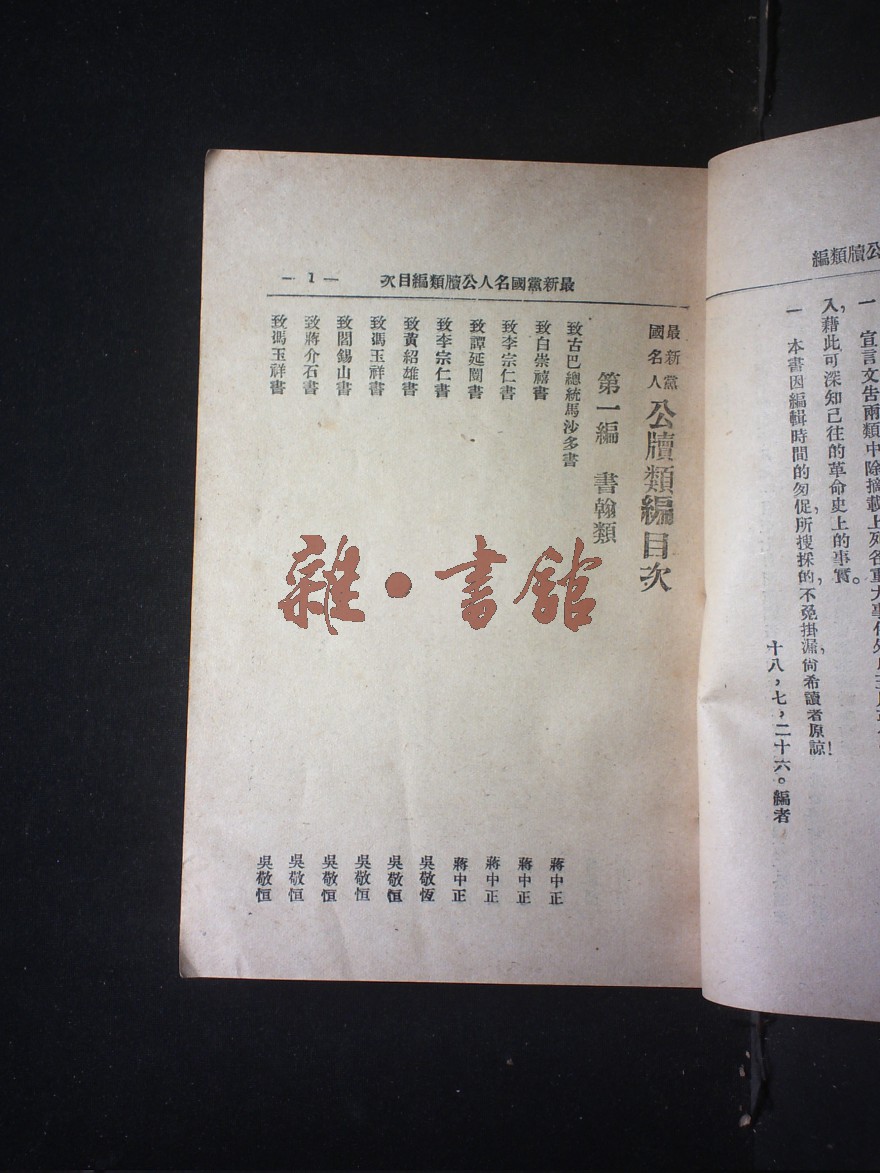 公牘類編
一 宣言文告兩類中除摘載上列各重大事件外
入藉此可深知已往的革命史上的事實。
一 本書因編輯時間的匆促,所搜採的,不免掛漏,尙希讀者原諒!
十八,七,二十六。編者
最新黨國名人公牘類編目次 — 1 —
最新黨國名人公牘類編目次
第一編 書翰類
致古巴總統馬沙多書 蔣中正
致白崇禧書 蔣中正
致李宗仁書 蔣中正
致譚延闓書 蔣中正
致李宗仁書 吳敬恆
致黃紹雄書 吳敬恒
致馮玉祥書 吳敬恒
致閻錫山書 吳敬恒
致蔣介石書 吳敬恒
致馮玉祥書 吳敬恒
雜·書館